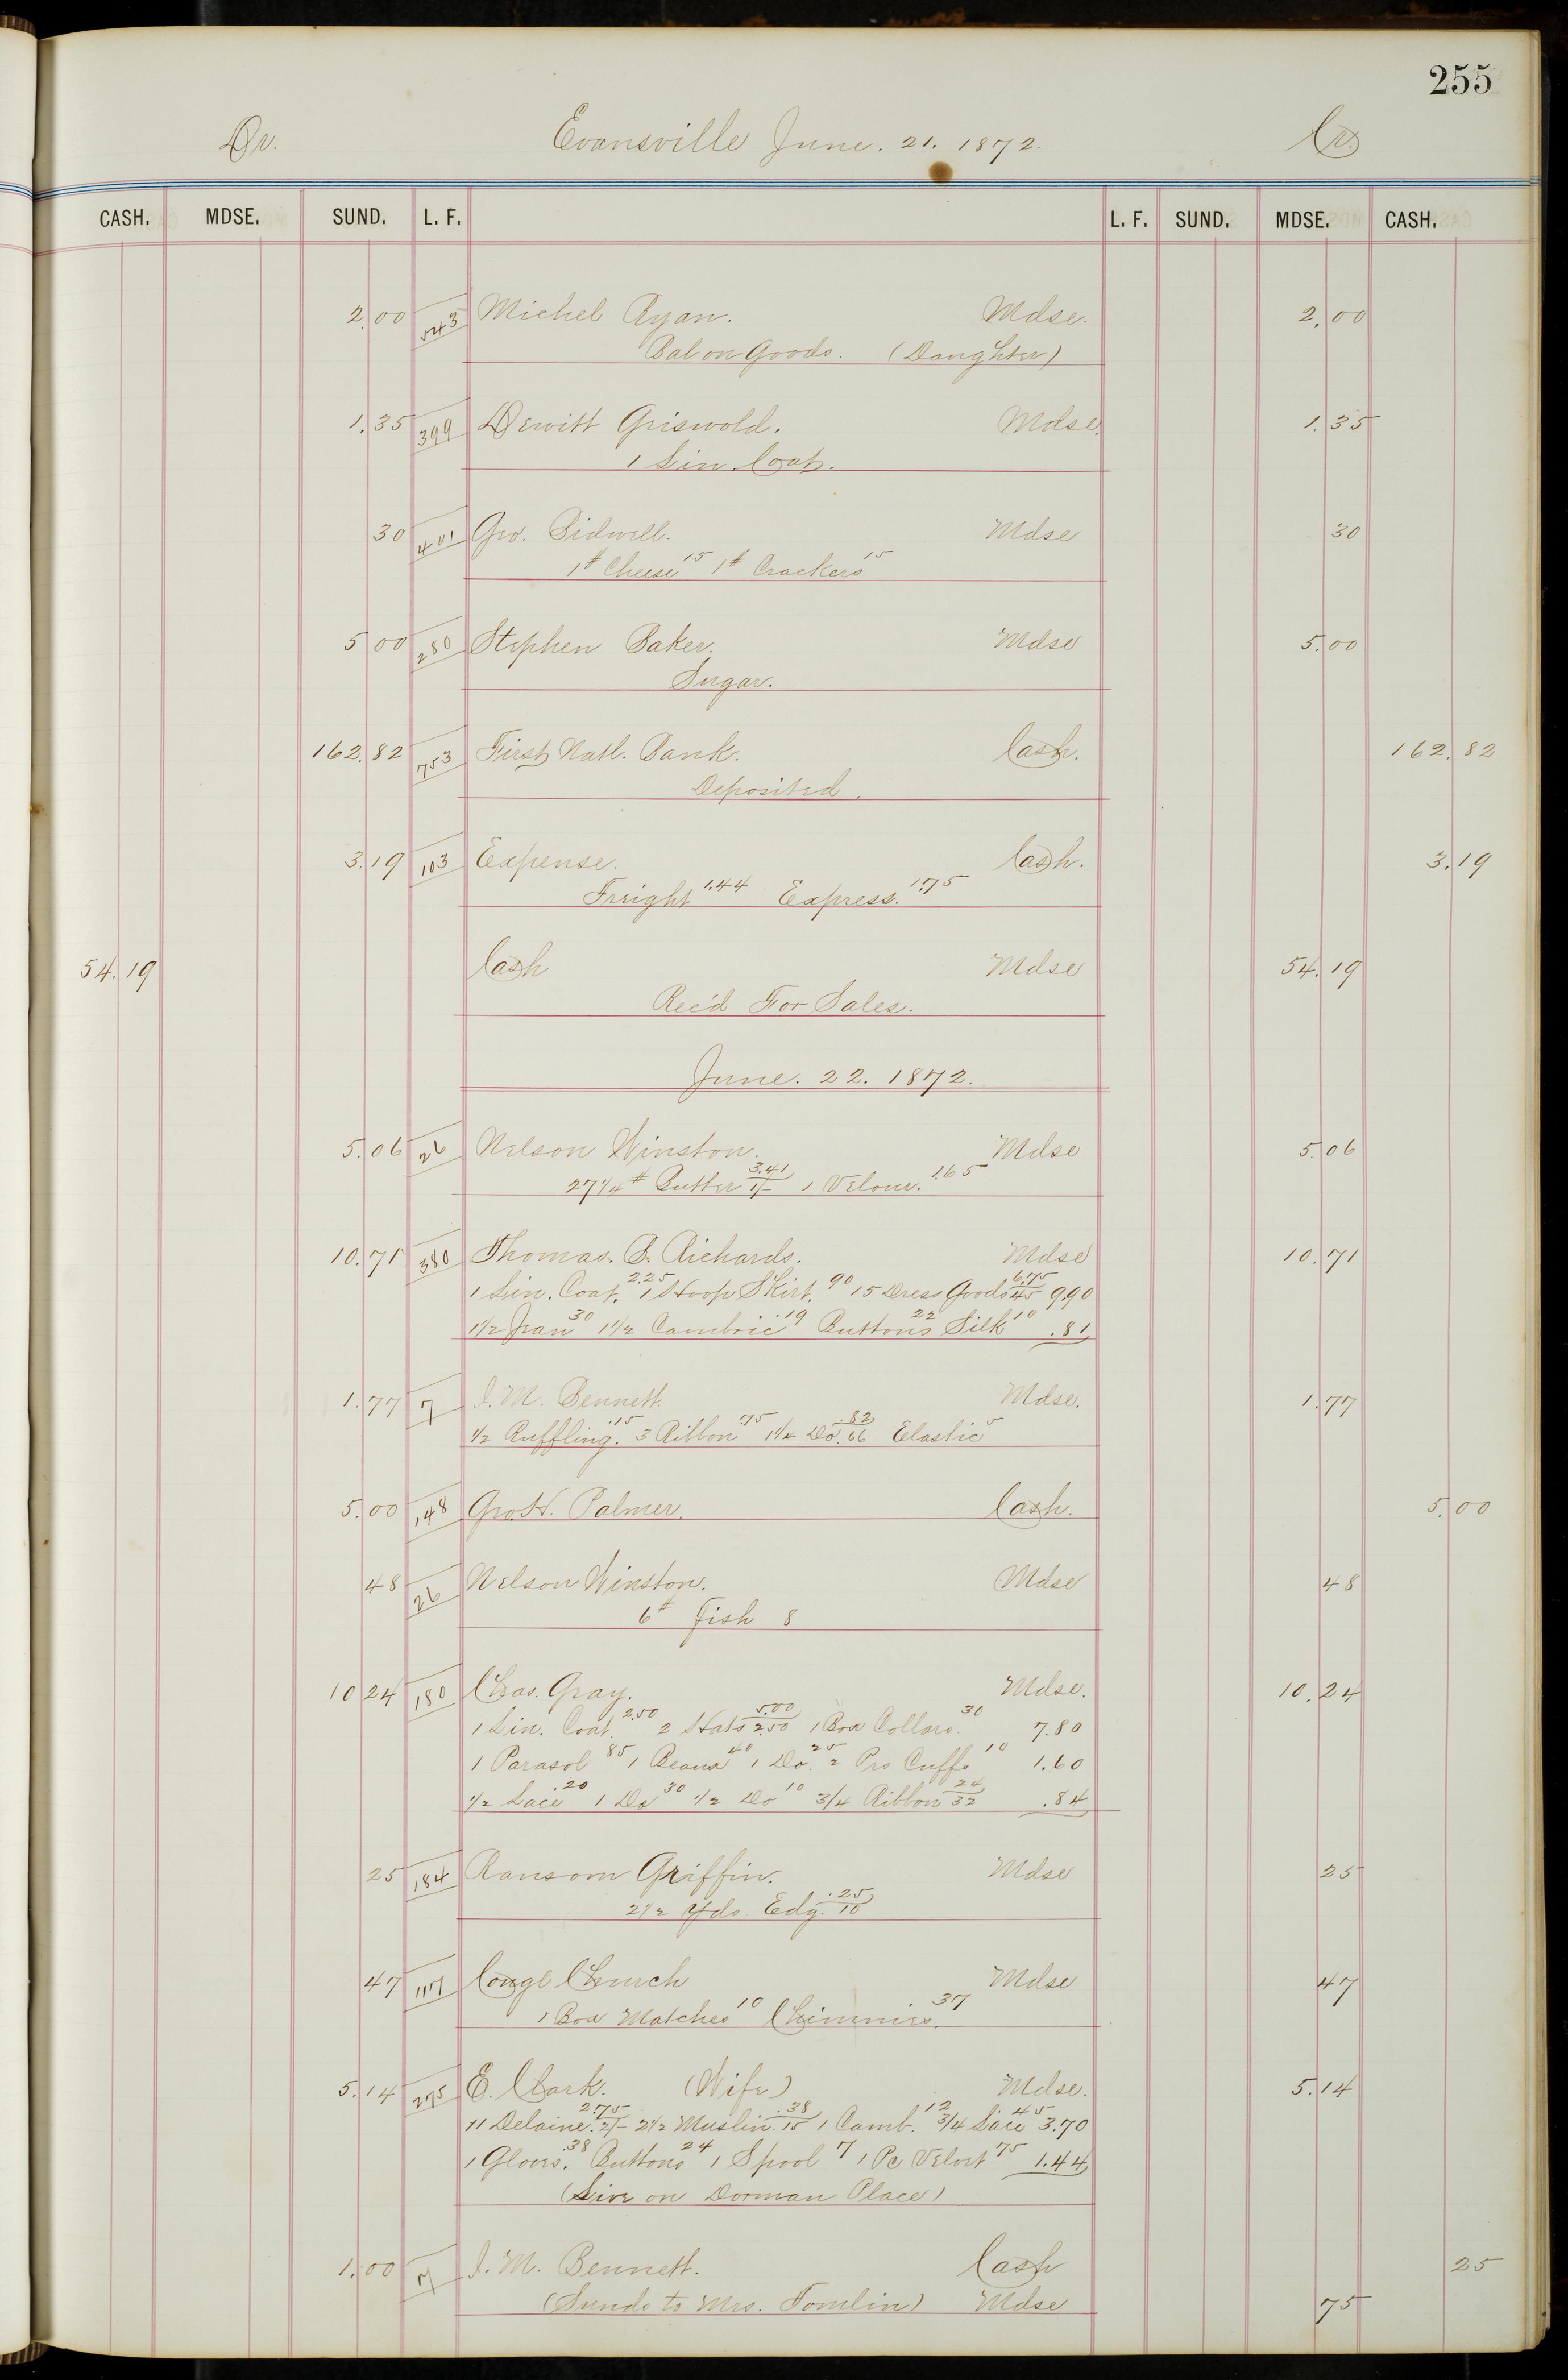 255
Dr. Evansville June. 21. 1872. Cr.
CASH. MDSE. SUND. L. F. L. F. SUND. MDSE. CASH.
2.00 543 Michel Ryan. Mdse. 2.00
Bal on Goods. (Daughter)
1.35 399 Dewitt Griswold. Mdse. 1.35
1 Lin. Coat.
30 401 Geo. Bidwell. Mdse 30
1# Cheese 15 1# Crackers 15
5 00 280 Stephen Baker. Mdse 5.00
Sugar.
162.82 753 First Natl. Bank. Cash. 162.82
Deposited.
3.19 103 Expense. Cash. 3.19
Freight 1.44 Express. 1.75
54.19 Cash Mdse 54.19
Rec'd For Sales.
June. 22. 1872.
5.06 26 Nelson Winston. Mdse 5.06
27 1/4# Butter 3.41 1/- 1 Velour. 1.65
10.71 380 Thomas. B. Richards. Mdse 10.71
1 Lin. Coat. 2.25 1 Hoop Skirt. 90 15 Dress Goods 6.75 45 9.90
1 1/2 Jean 30 1 1/2 Cambric .19 Buttons 22 Silk 10 .81
1.77 7 I. M. Bennett. Mdse. 1.77
1/2 Ruffling. .15 3 Ribbon 75 1 1/4 Do. .82 66 Elastic 5
5.00 148 Geo. H. Palmer. Cash. 5.00
48 26 Nelson Winston. Mdse 48
6# Fish 8
10 24 180 Chas. Gray. Mdse. 10.24
1 Lin. Coat. 2.50 2 Hats 5.00 2.50 1 Box Collars. 30 7.80
1 Parasol 85 1 40 1 Do. 25 2 Prs Cuffs 10 1.60
1/2 Lace .20 1 Do 30 1/2 Do 10 3/4 Ribbon 24 32 .84
25 184 Ransom Griffin. Mdse 25
2 1/2 Yds. Edg. .25 10
47 117 Congl Church Mdse 47
1 Box Matches 10 Chimnies. 37
5.14 275 E. Clark. (Wife) Mdse. 5.14
11 Delaine. 2.75 2/- 2 1/2 Muslin .38 15 1 Camb. 12 3/4 Lace 45 3.70
1 Gloves. .38 Buttons 24 1 Spool 7 1 Pc Velvet 75 1.44
(Live on Dorman Place)
1.00 7 I. M. Bennett. Cash 25
(Sunds to Mrs. Tomlin) Mdse 75